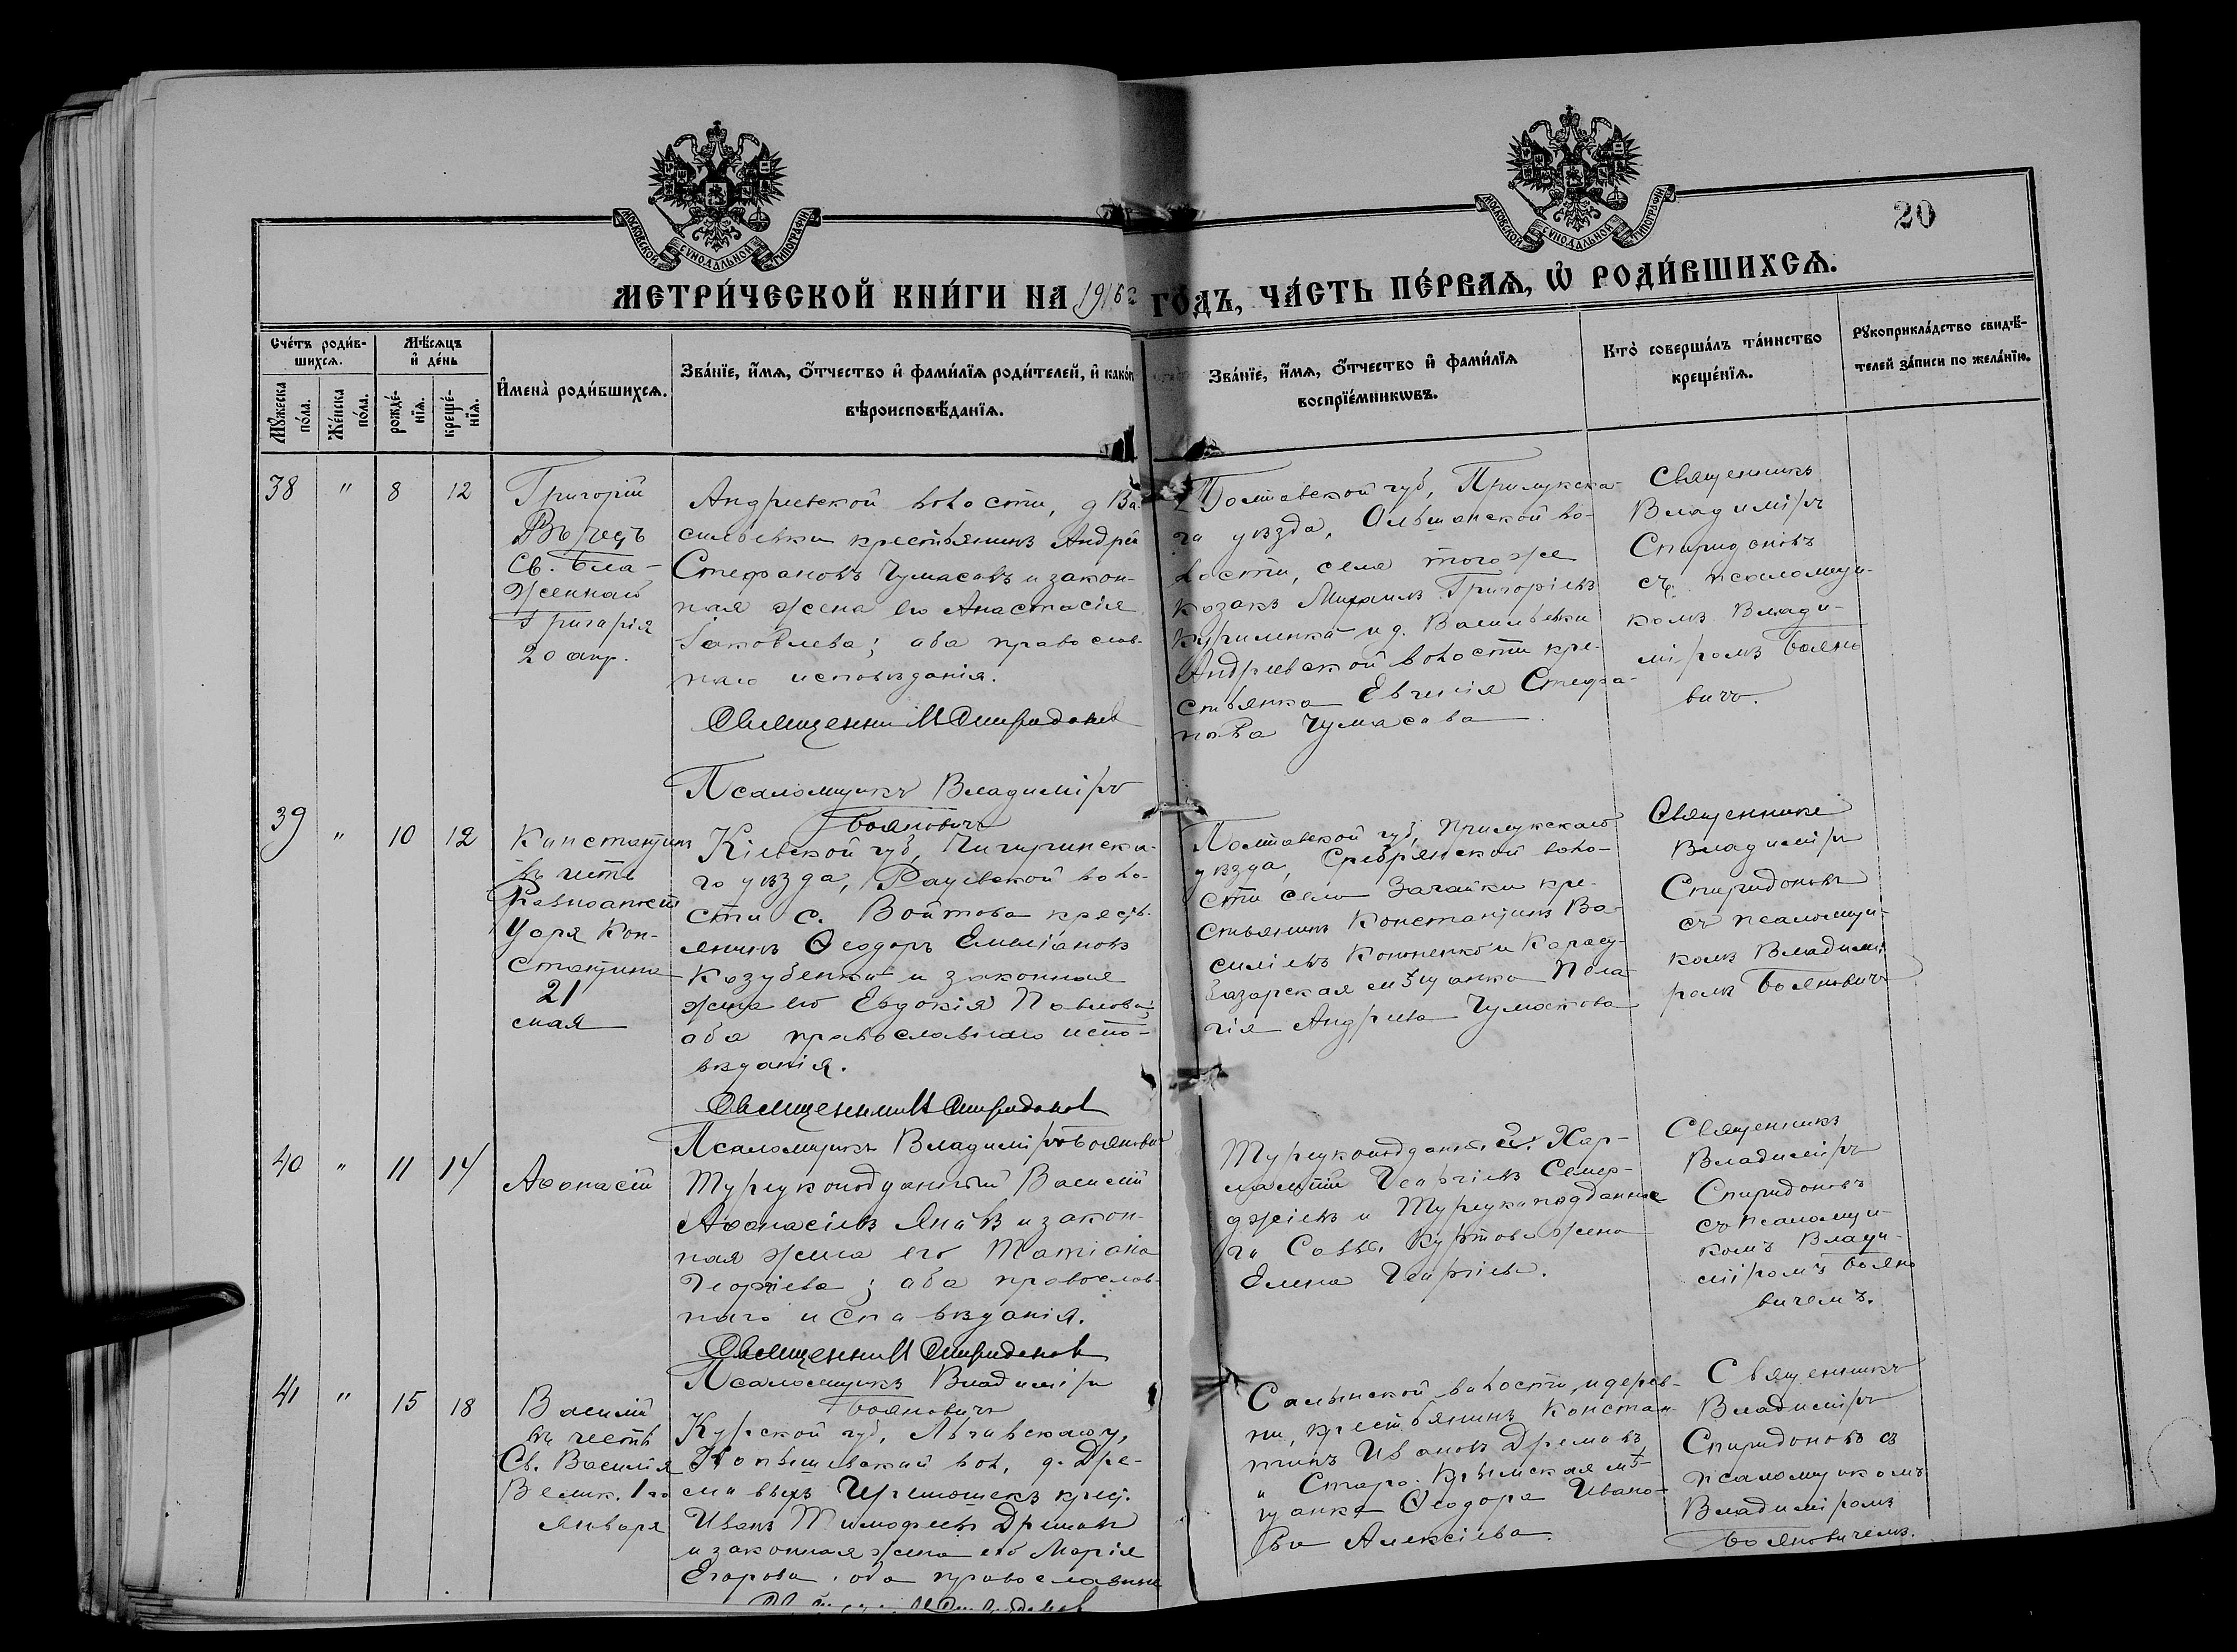 МОСКОВСКОЙ СѴНОДАЛЬНОЙ ТИПОГРАФІИ
МОСКОВСКОЙ СѴНОДАЛЬНОЙ ТИПОГРАФІИ
20
МЕТРИ́ЧЕСКОЙ КНИ́ГИ НА 1916 ГО́ДЪ, ЧА́СТЬ ПЕ́РВАѦ, Ѡ҆ РОДИ́ВШИХСѦ.
Сче́тъ роди́в-
шихсѧ.
Мꙋ́жеска
по́ла.
Же́нска
по́ла.
Мѣ́сѧцъ
и҆ де́нь
рожде́-
нїѧ.
креще́-
нїѧ.
И҆мена̀ роди́вшихсѧ.
Зва́нїе, и҆́мѧ, ѻ҆́тчество и҆ фами́лїѧ роди́телей, и҆ како́гѡ
вѣроисповѣ́данїѧ.
Зва́нїе, и҆́мѧ, ѻ҆́тчество и҆ фами́лїѧ
воспрїе́мникѡвъ.
Кто̀ соверша́лъ та́инство
креще́нїѧ.
Рꙋкоприкла́дство свидѣ́-
телей за́писи по жела́нїю.
38 " 8 12
Григорій
Въ честь
Св. Бла-
женнаго
Григорія
20 апр.
Андреевской волости, д Ва-
сильевки крестьянинъ Андрей
Стефановъ Чумасовъ и закон-
ная жена его Анастасія
Іаковлева; оба православ-
наго исповѣданія.
Священник Спиридонов
Псаломщикъ Владиміръ
Бояновичъ
Полтавской губ, Прилукска-
го уѣзда, Ольшанской во-
лости, села того же
козакъ Михаилъ Григоріевъ
Куриленко и д. Васильевки
Андреевской волости кре-
стьянка Евгенія Стефа-
нова Чумасова
Священникъ
Владиміръ
Спиридоновъ
съ псаломщи-
комъ Влади-
міромъ Бояно
вичъ.
39 " 10 12
Константинъ
въ честь
Равноапост
Царя Кон-
стантина
21
мая
Кіевской губ, Чигиринска-
го уѣзда, Рацевской воло-
сти с. Войтова кресть-
янинъ Ѳеодоръ Емеліановъ
Козубенко и законная
жена его Евдокія Павлова;
оба православнаго испо-
вѣданія.
Священник Спиридонов
Псаломщикъ Владиміръ Бояновичъ
Полтавской губ, Прилукскаго
уѣзда, Сребрянской воло-
сти села Загайки кре-
стьянинъ Константинъ Ва-
силіевъ Кононенко и Карасу-
базарская мѣщанка Пела-
гія Андреева Чумакова
Священникъ
Владиміръ
Спиридоновъ
съ псаломщи-
комъ Владимі
ромъ Бояновичъ
40 " 11 14
Аѳанасій
Турецкоподданный Василій
Аѳанасіевъ Яневъ и закон-
ная жена его Татіана
Георгіева; оба православ-
наго исповѣданія.
Священник Спиридонов
Псаломщикъ Владиміръ
Бояновичъ
Турецкоподдан. Хар-
лампій Георгіевъ Семер-
джіевъ и Турецкоподданна
го Саввы Куртова жена
Елена Георгіева.
Священникъ
Владиміръ
Спиридоновъ
съ псаломщи-
комъ Влади-
міромъ Бояно
вичемъ.
41 " 15 18
Василій
въ честь
Св. Василія
Велик. 1го
Января
Курской губ, Льговскаго у,
вол, д. Дре-
мовыхъ Черемошекъ крест.
Иванъ Тимофеевъ Дремовъ
и законная жена его Марія
Егорова, оба православные
Салынской волости, и дерев-
ни, крестьянинъ Констан-
тинъ Ивановъ Дремовъ
" Старо-Крымская мѣ-
щанка Ѳеодора Ивано-
ва Алексіева.
Священникъ
Владиміръ
Спиридоновъ съ
псаломщикомъ
Владиміромъ
Бояновичемъ.